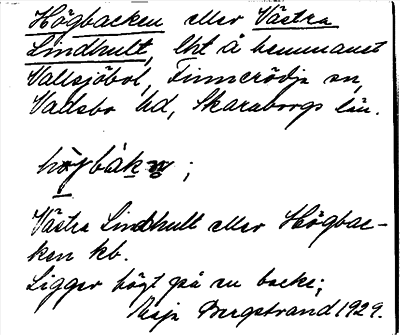 Högbacken eller Västra
Lindhult, lht å hemmanet
Vallsjöbol, Finnerödja sn,
Vadsbo hd, Skaraborgs län.
Västra Lindhult eller Högbac-
ken kb.
Ligger högt på en backe;
Bergstrand 1929.